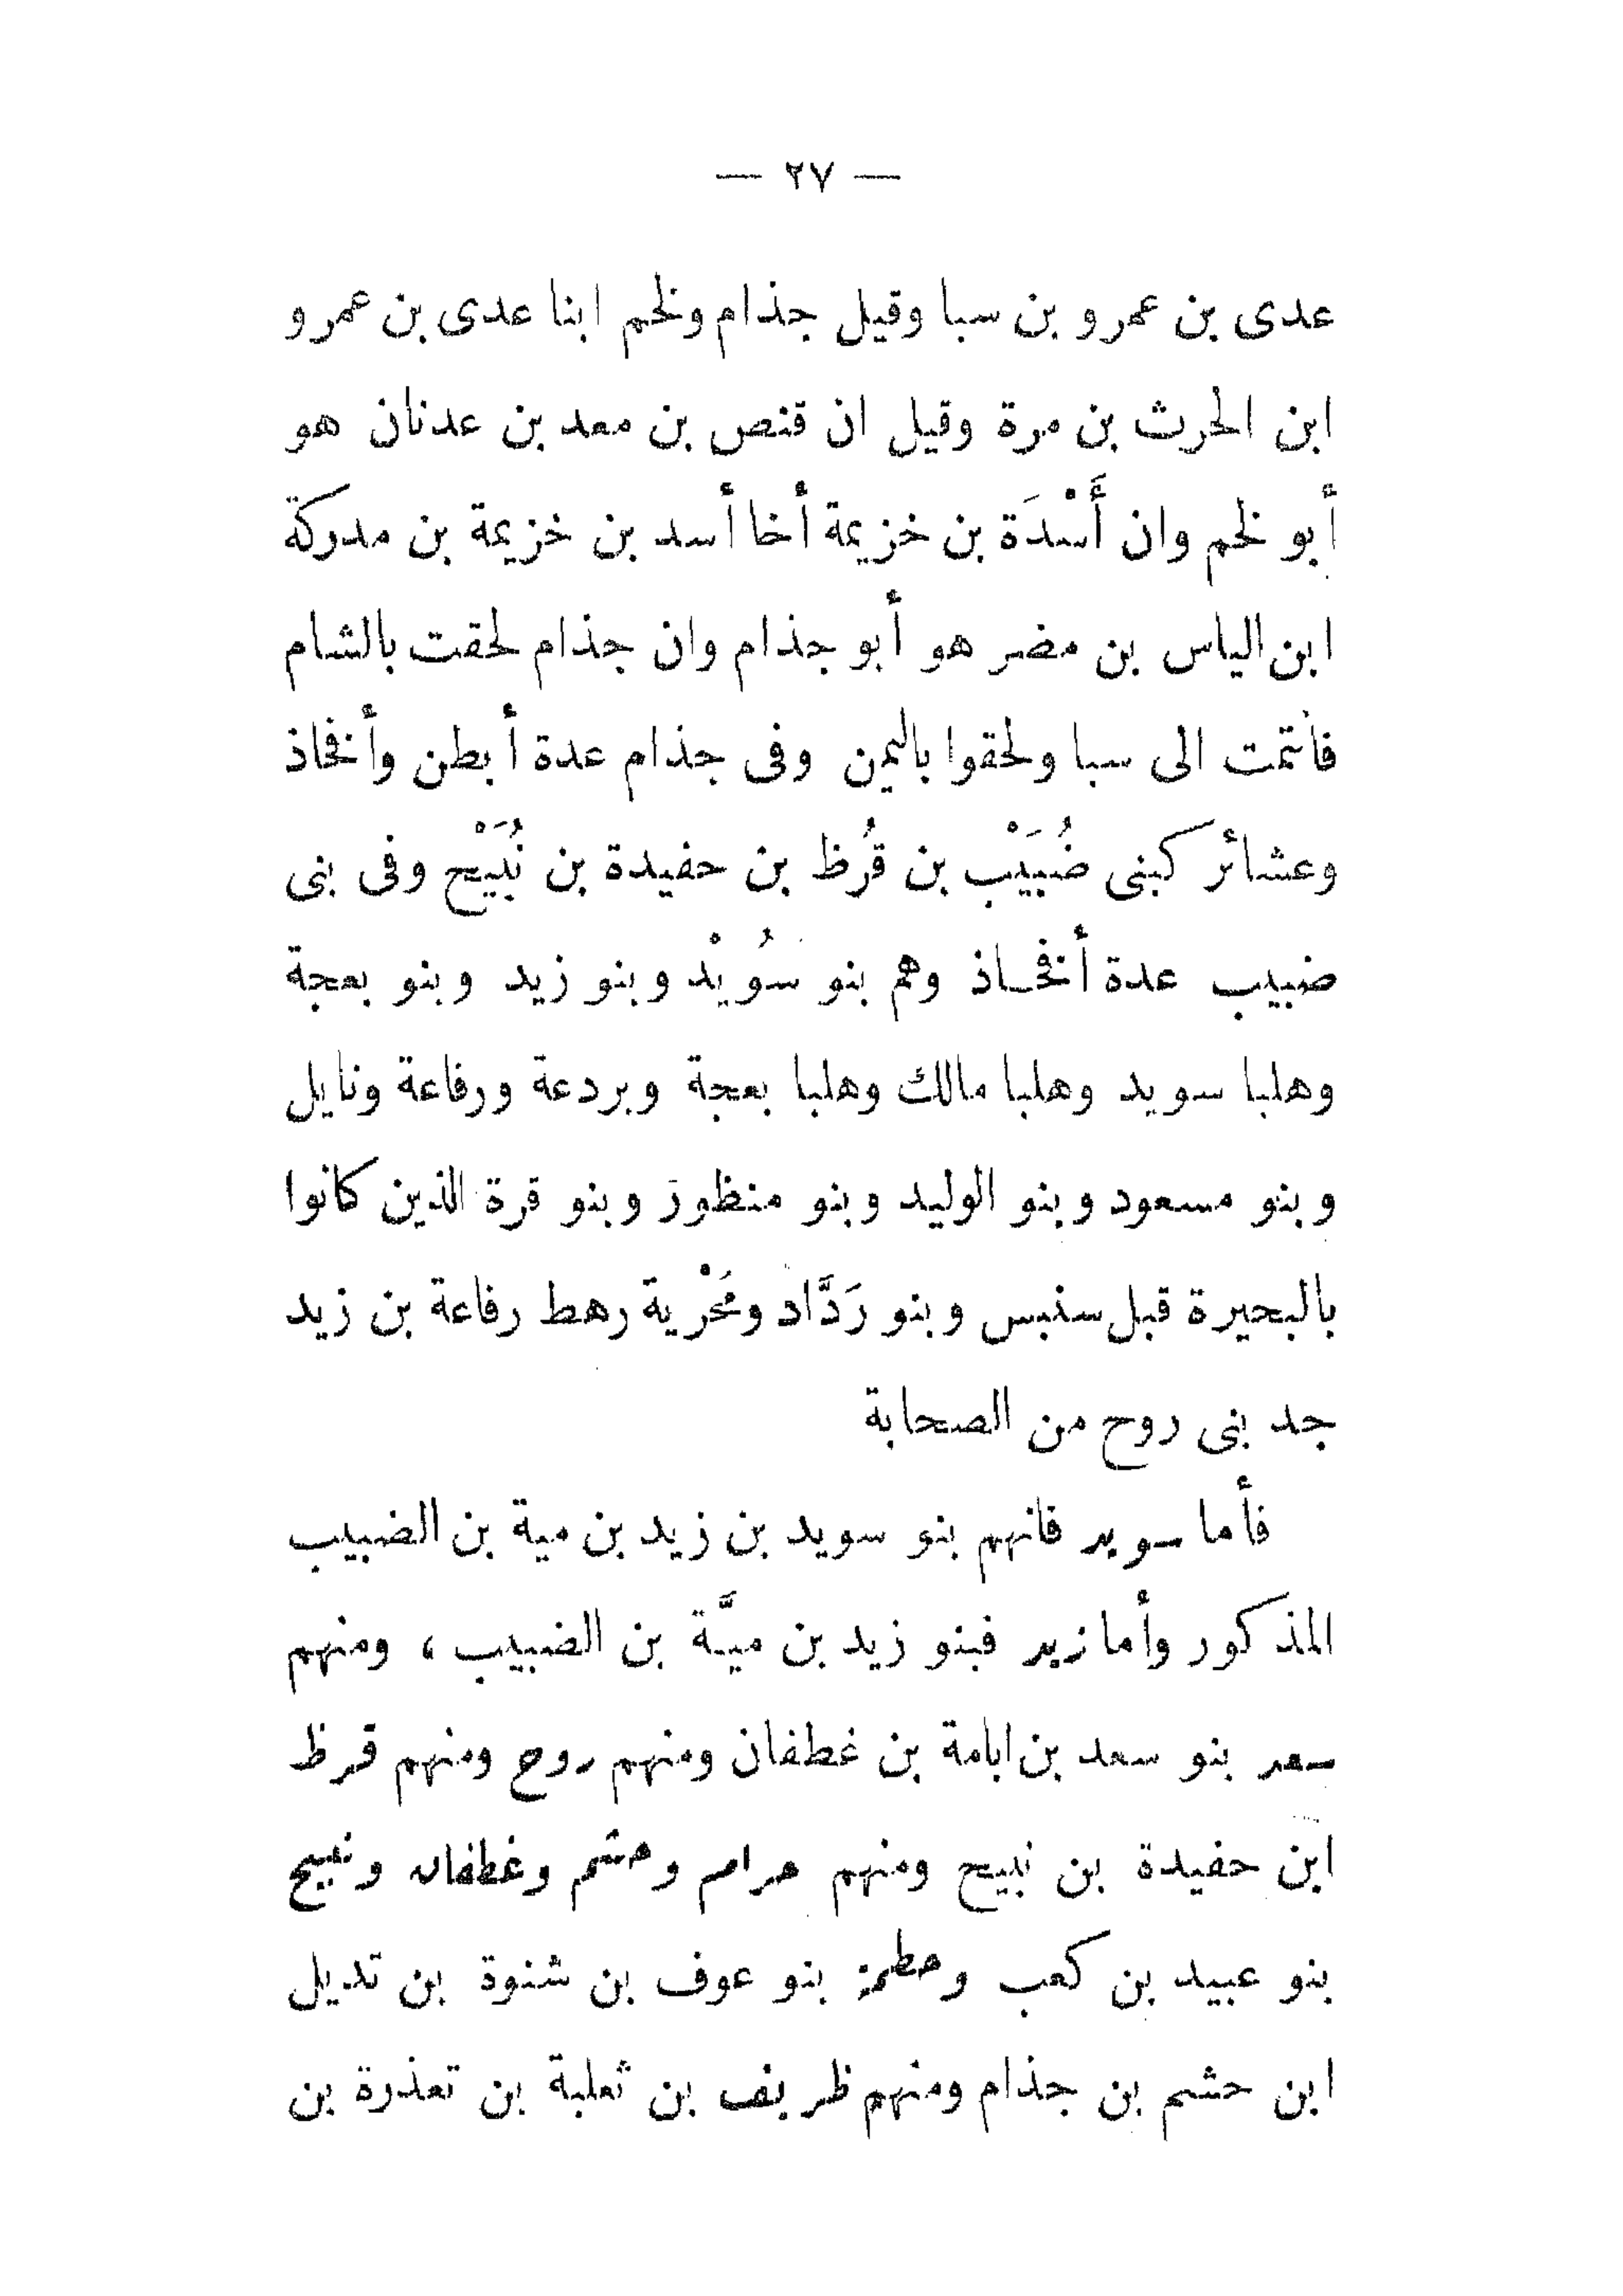 — ٢٧ —
عدى بن عمرو بن سبا وقيل جذام ولخم ابنا عدى بن عمرو
ابن الحرث بن مرة وقيل ان قنص بن معد بن عدنان هو
أبو لخم وان أَسْدَة بن خزيمة أخا أسد بن خزيمة بن مدركة
ابن الياس بن مضر هو أبو جذام وان جذام لحقت بالشام
فأنتمت الى سبا ولحقوا باليمن وفى جذام عدة أبطن وأفخاذ
وعشائر كبنى ضُبَيْب بن قُرظ بن حفيدة بن نُبَيْح وفى بنى
ضبيب عدة أفخاذ وهم بنو سُويْد وبنو زيد وبنو بعجة
وهلبا سويد وهلبا مالك وهلبا بعجة وبردعة ورفاعة ونايل
وبنو مسعود وبنو الوليد وبنو منظور وبنو قرة الذين كانوا
بالبحيرة قبل سنبس وبنو رَدَّاد ومَخْرية رهط رفاعة بن زيد
جد بنى روح من الصحابة
فأما سويد فانهم بنو سويد بن زيد بن مية بن الضبيب
المذكور وأما زيد فبنو زيد بن ميَّة بن الضبيب ، ومنهم
سعد بنو سعد بن ابامة بن غطفان ومنهم روح ومنهم قرظ
ابن حفيدة بن نبيح ومنهم حرام وحشم وغطفان ونبيح
بنو عبيد بن كعب وحطمة بنو عوف بن شنوة بن تديل
ابن حشم بن جذام ومنهم ظريف بن ثعلبة بن تعذرة بن